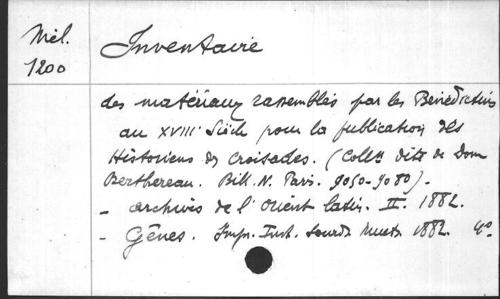 Mél.
1200
Inventaire
des matériaux rassemblés par les Bénédictins
au XVIIIe Siècle pour la publication des
Historiens des Croisades. (Colln dite de Dom
Berthereau. Bibl. N. Paris. 9050-9080).
- archives de l'Orient latin. II. 1882.
- Gênes. Impr. Inst. Sourds Muets 1882. 4º